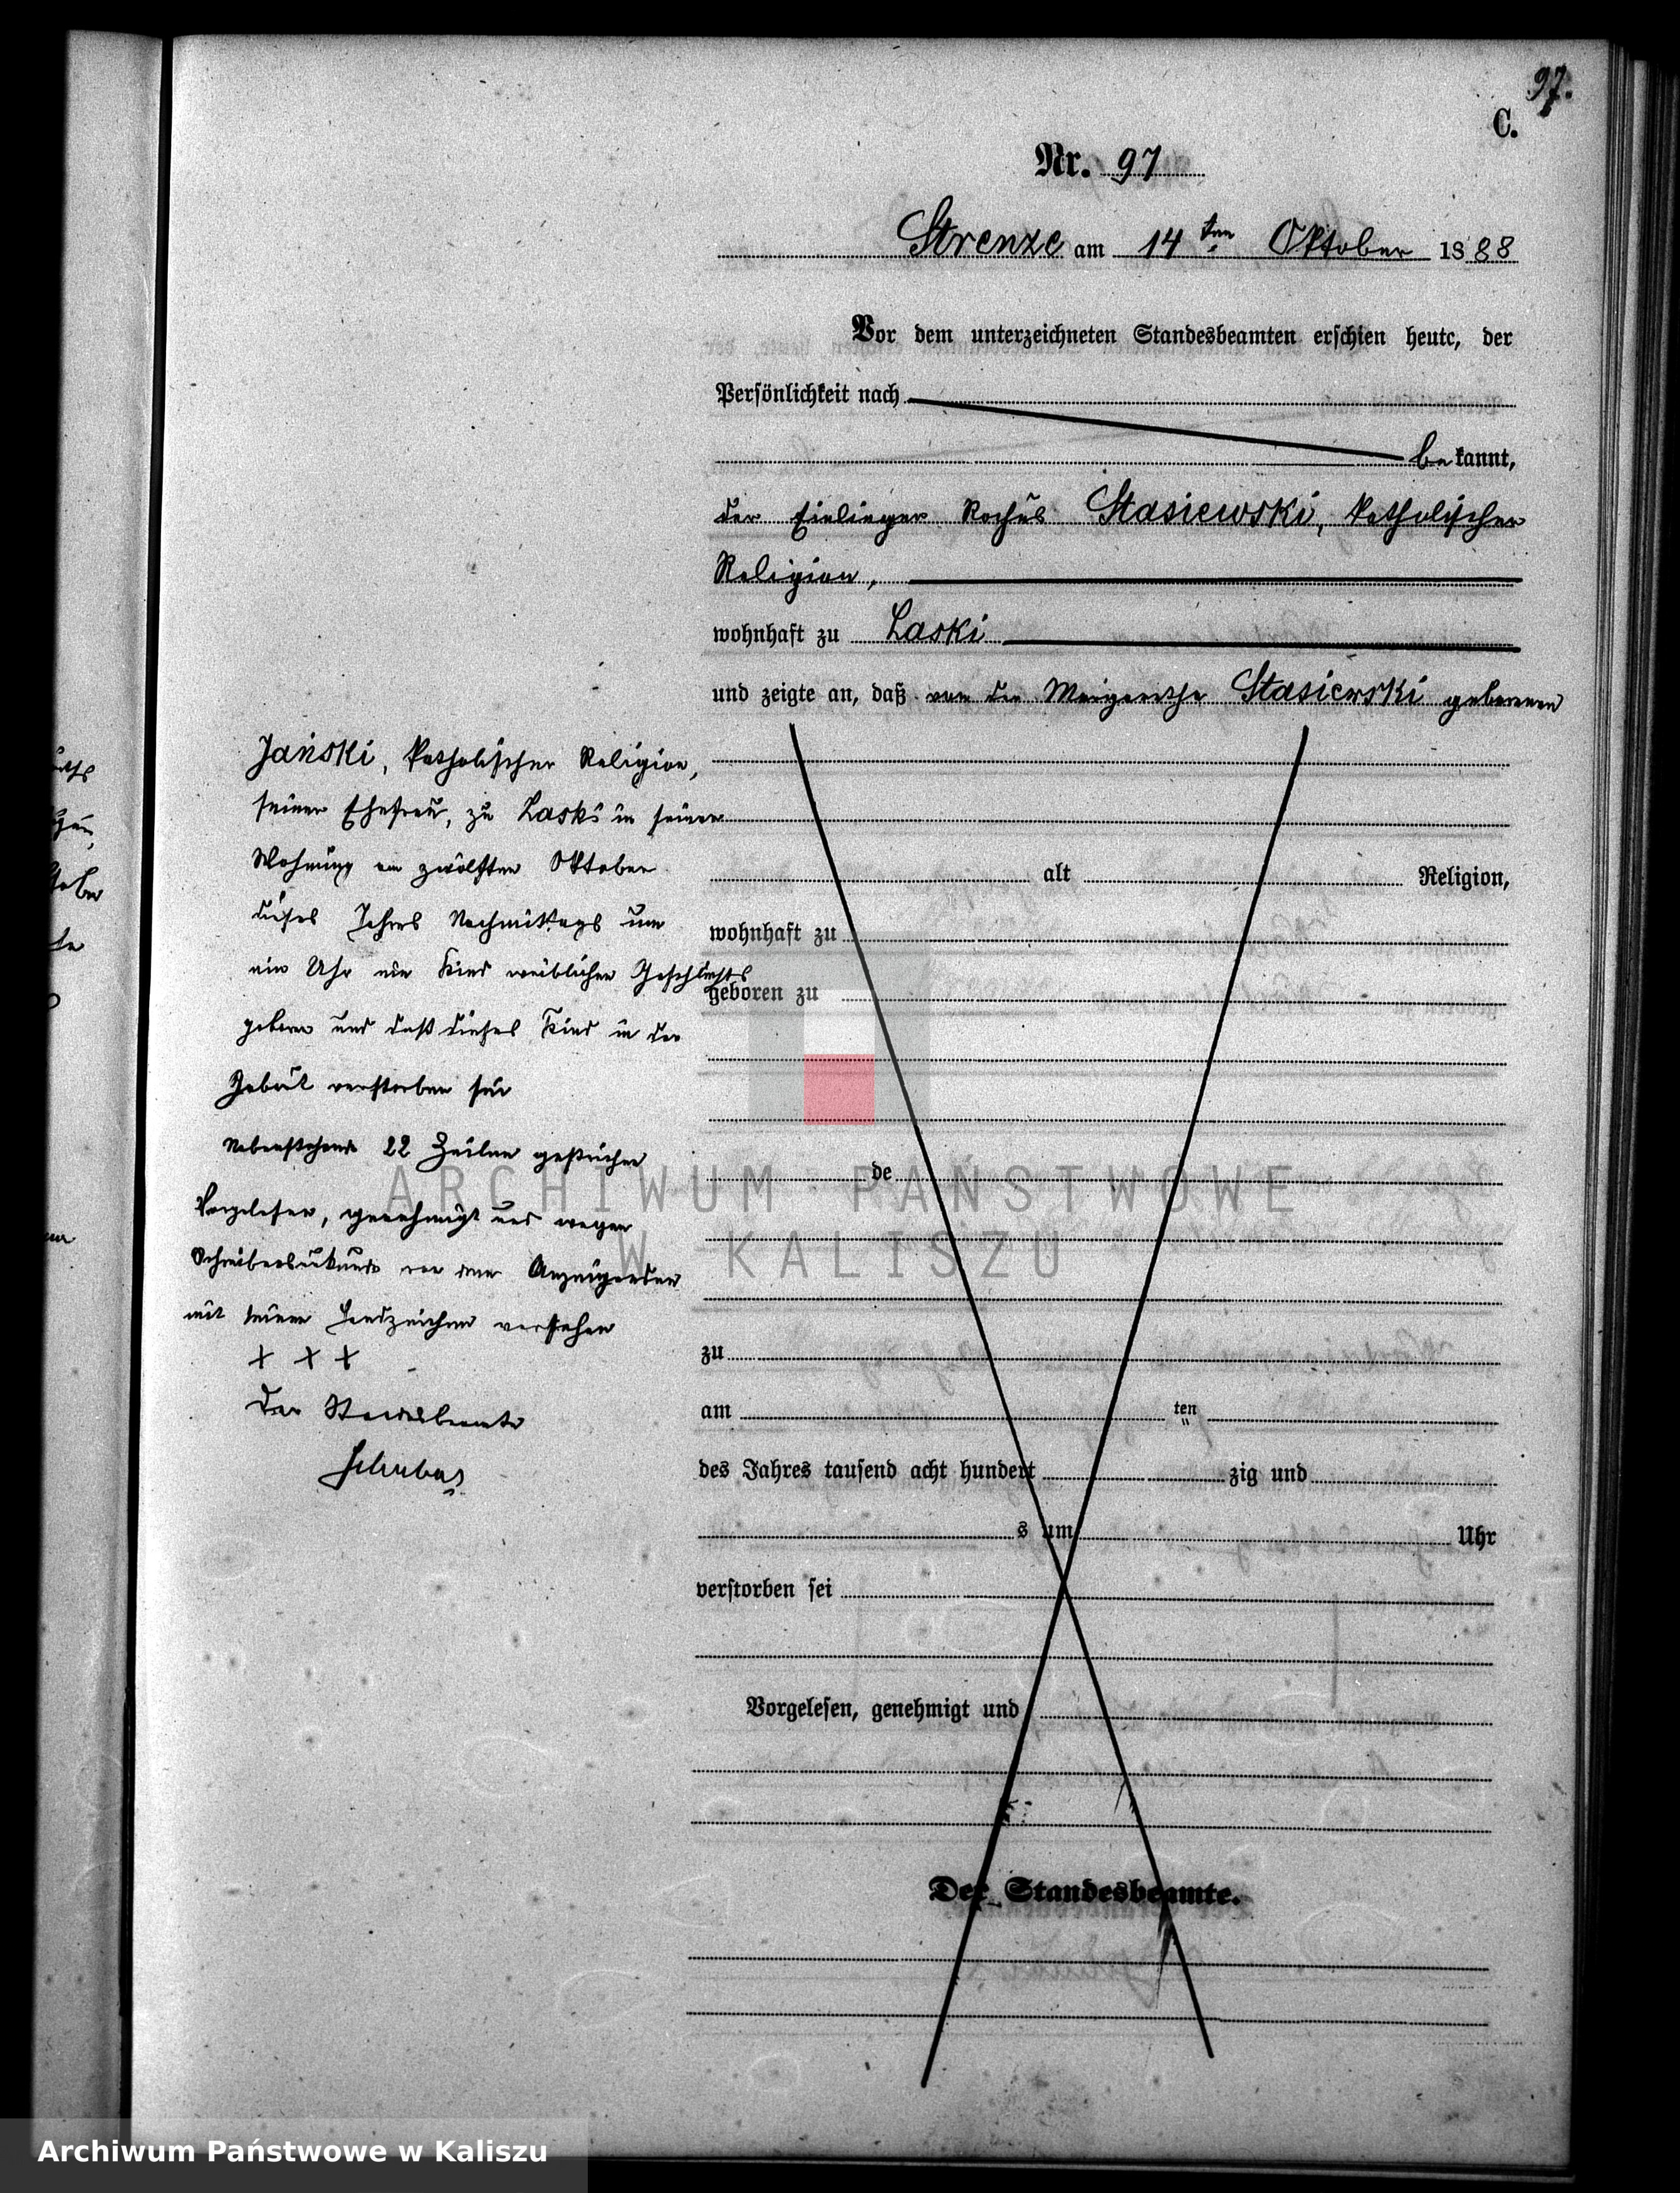 97.
C.
Nr. 97
Strenze am 14 ten Oktober 1888
Vor dem unterzeichneten Standesbeamten erschien heute, der
Persönlichkeit nach
bekannt,
der Einlieger Rochus Stasiewski, katholischer
Religion,
wohnhaft zu Laski
und zeigte an, daß von der Margarethe Stasiewski geborenen
Jański, katholischer Religion,
seiner Ehefrau, zu Laski in seiner
Wohnung am zwölften Oktober
dieses Jahres Nachmittags um
ein Uhr ein Kind weiblichen Geschlechts
geboren und daß dieses Kind in der
Geburt verstorben sei
Nebenstehende 22 Zeilen gestrichen
Vorgelesen, genehmigt und wegen
Schreibensunkunde von dem Anzeigenden
mit seinem Handzeichen versehen
X X X
Der Standesbeamte
alt Religion,
wohnhaft zu
geboren zu
de
zu
am ten
des Jahres tausend acht hundert zig und
s um Uhr
verstorben sei
Vorgelesen, genehmigt und
Der Standesbeamte.
ARCHIWUM PAŃSTWOWE
W KALISZU
Archiwum Państwowe w Kaliszu